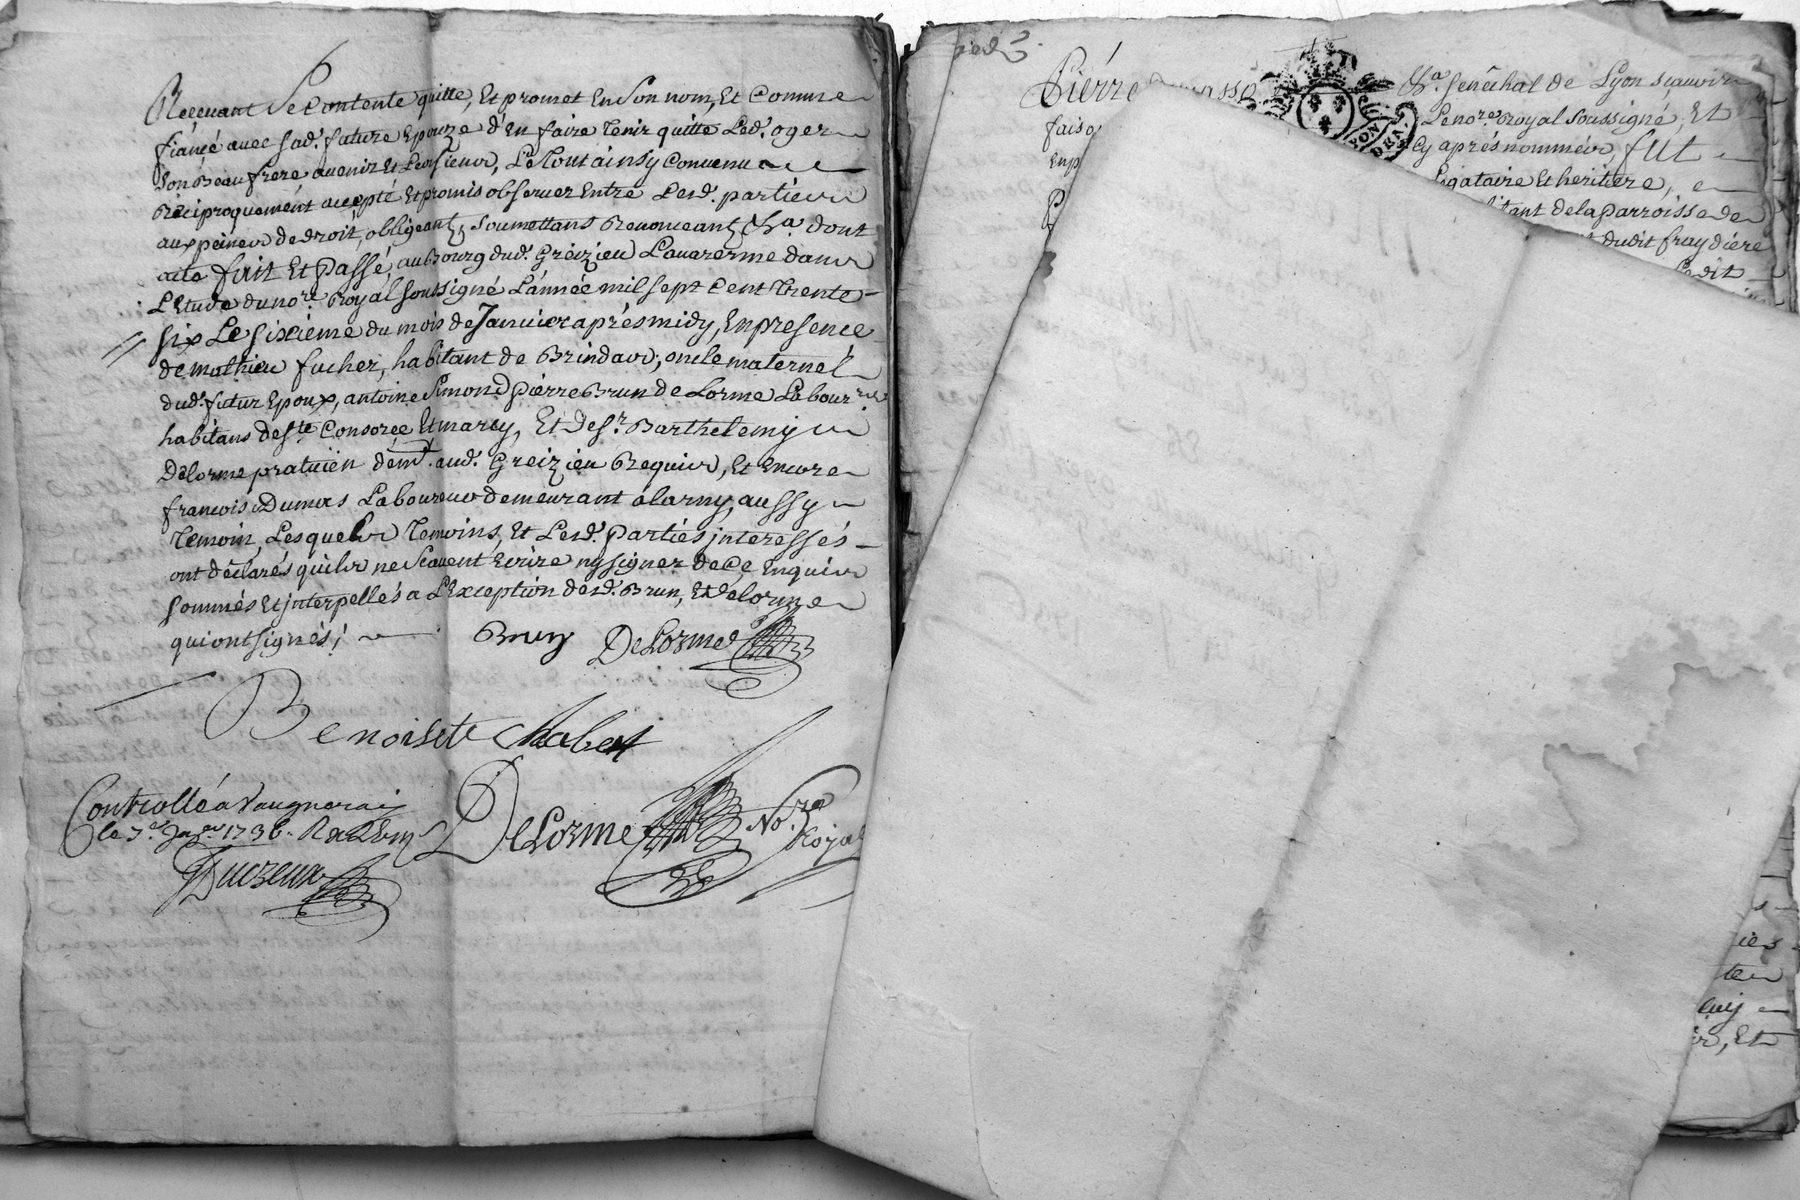 Recevant Se Contente quitte, Et promet En Son nom, Et Comme
fiancé avec Sad. future Epouze d'En faire tenir quitte Led. oger
Son Beaufrere avenir Et Les Sieurs, Le Tout ainsy Convenu
Reciproquement accepté Et promis observer Entre Lesd. parties
aux peines de droit, obligeant, Soumettans Renonceant, &a. dont
acte fait Et Passé, au Bourg dud. Greizieu Lavarenne dans
L'Etude du nore. Royal Soussigné L'année mil sept Cent Trente
Six Le Sixieme du mois de Janvier après midy, En presence
de mathieu fucher, habitant de Brindas, oncle maternel
dud. futur Epoux, antoine Simond Pierre Brun de Lorme Labour
habitans de Ste. Consorce Et marcy, Et de Sr. Barthelemy
Delorme pratuien demt. aud. Greizieu Requis, Et Encore
francois Dumas Laboureur demeurant a larny, aussy
temoin, Lesquels Temoins, Et Lesd. Parties interessés
ont déclarés quils ne Scavent Ecrire ny signer de Ce Enquis
Sommés Et interpellés a L'Exception desd. Brun, Et Delorme
qui ont Signés;
Brun DeLorme
Benoiste Chabert
Controllé a Vaugneray
le 7e Jaer 1736.
DeLorme Nore Royal
Ducreux
Pierre
&a. Senéchal de Lyon scavoir
faiso
Le nore. Royal Soussigné, Et
Enp
Cy après nommés, fut
Legataire Et heritiere,
habitant de la Parroisse de
dudit fraydiere
Ledit
ies
te
Et